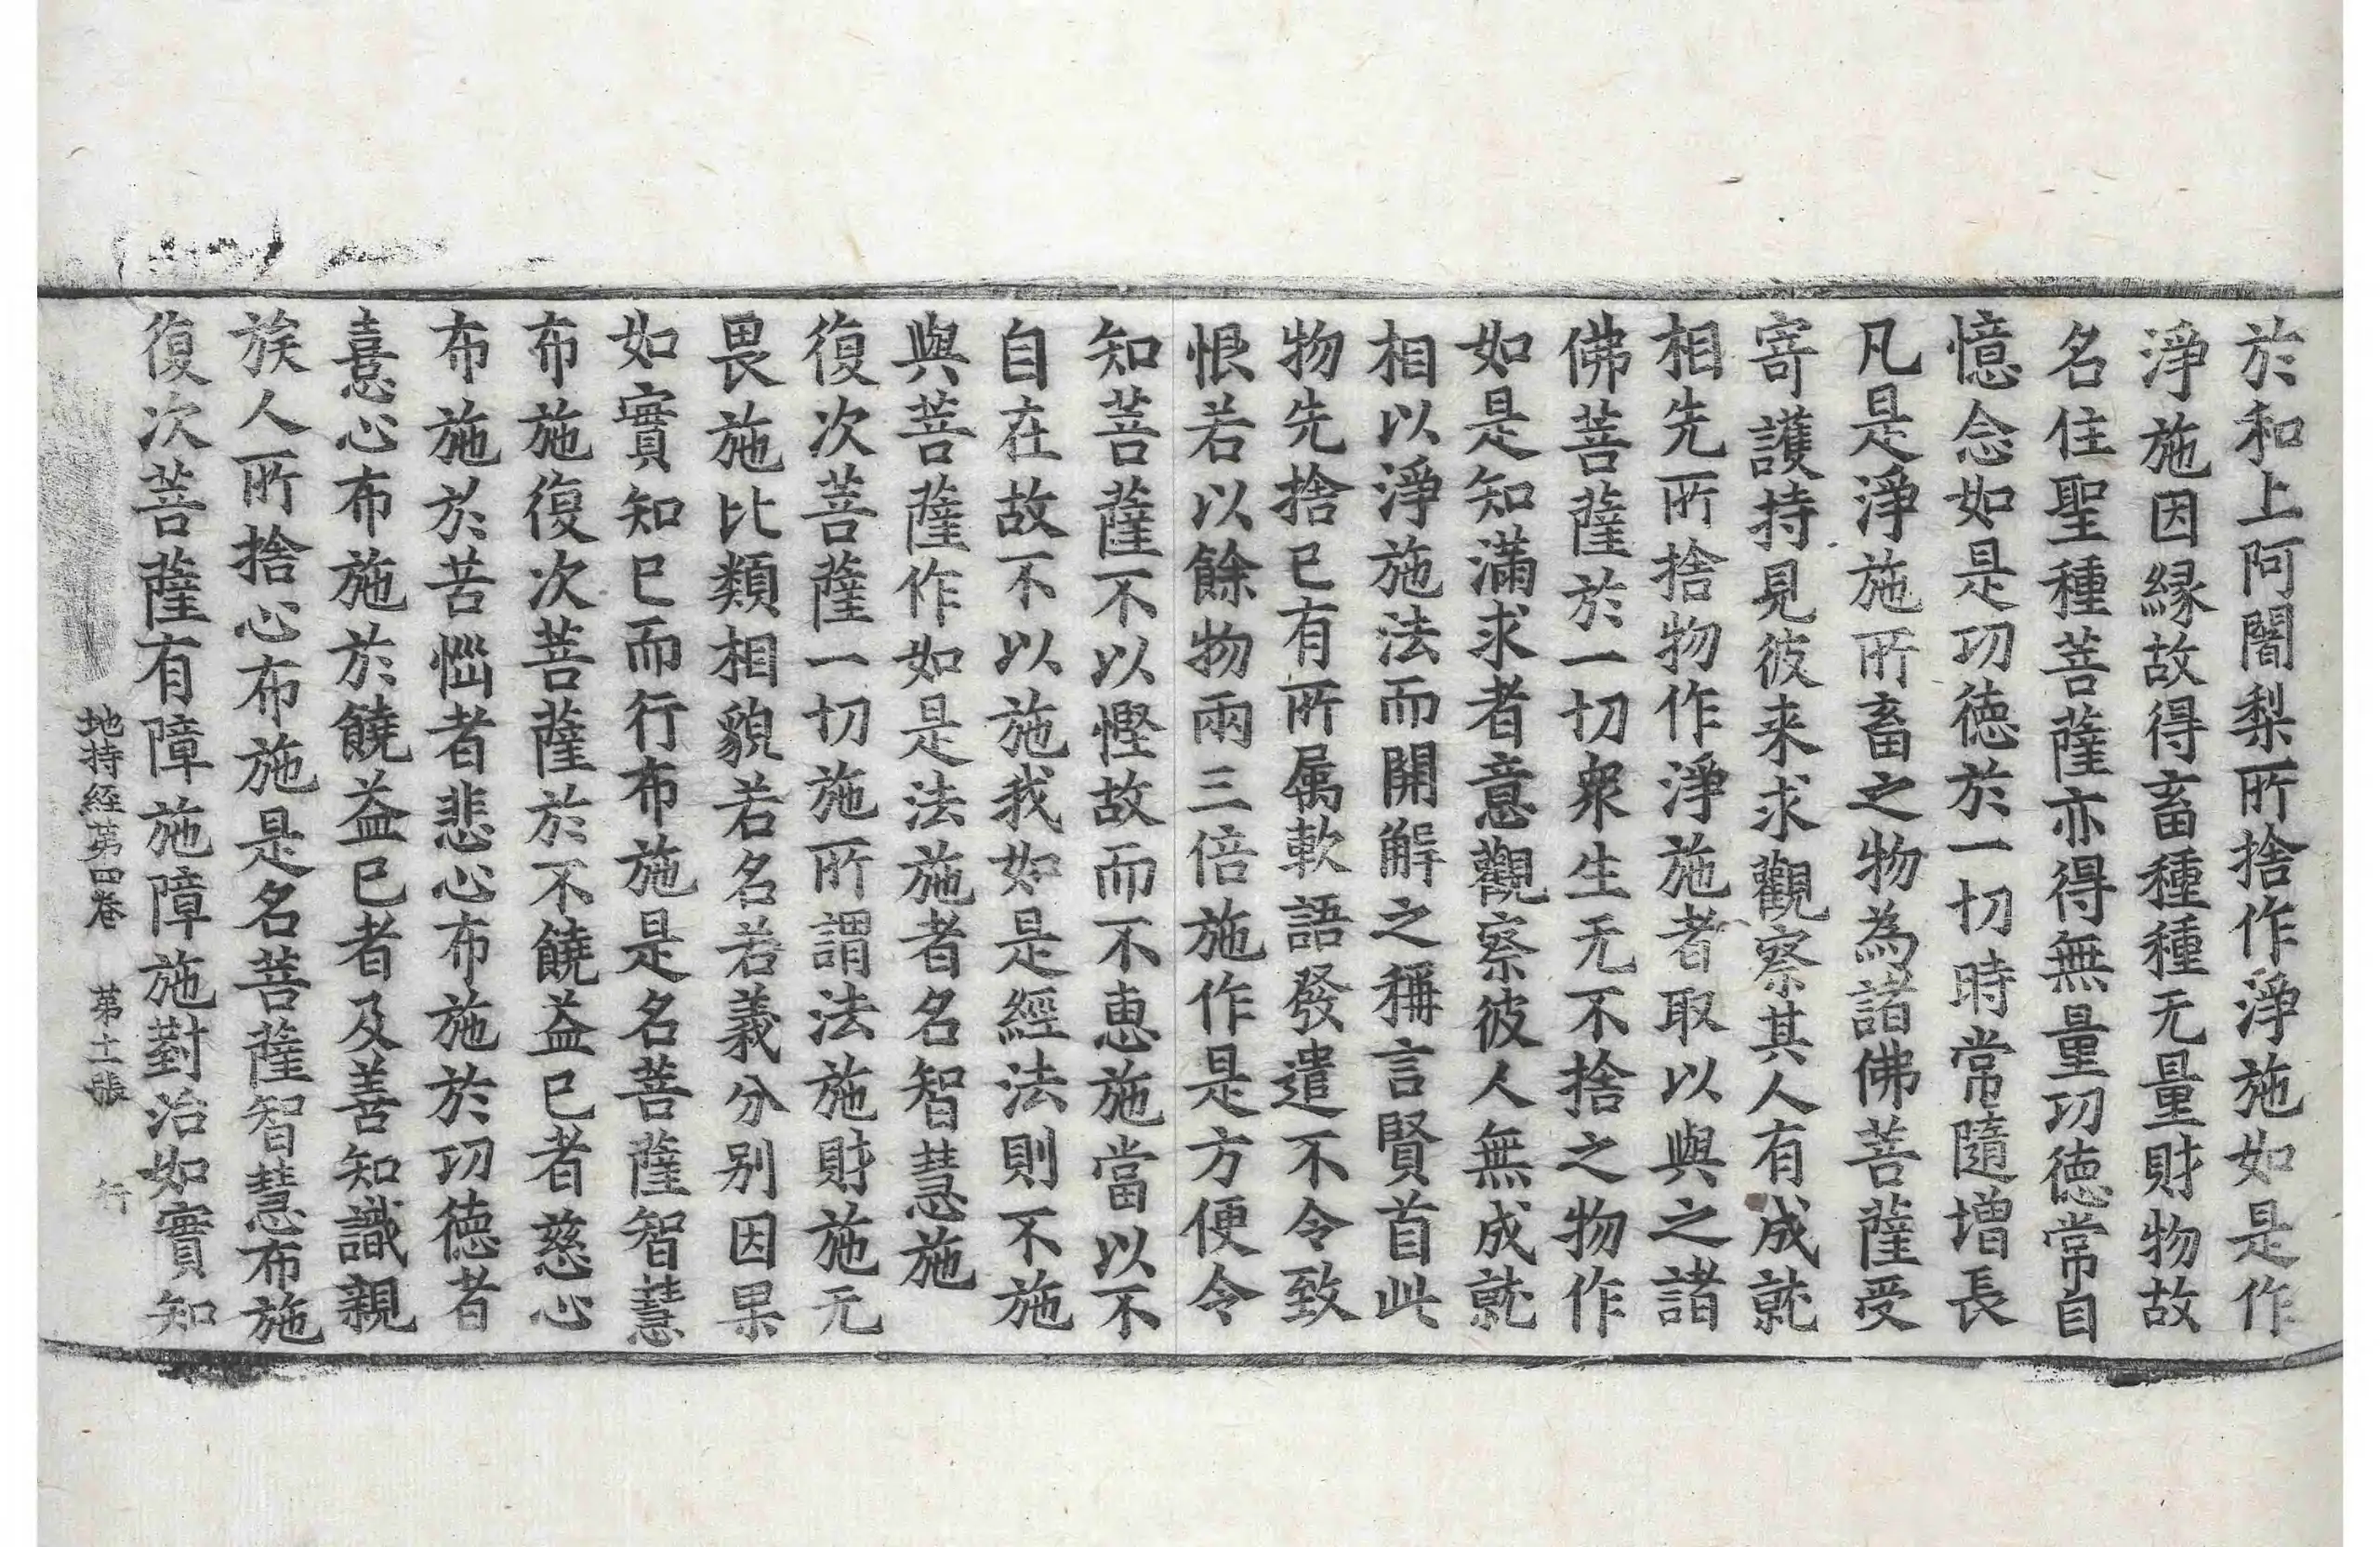 於和上阿闍梨所捨作淨施如是作
淨施因縁故得畜種種无量財物故
名住聖種菩薩亦得無量功德常自
憶念如是功德於一切時常隨增長
凡是淨施所畜之物為諸佛菩薩受
寄護持見彼来求觀察其人有成就
相先所捨物作淨施者取以與之諸
佛菩薩於一切衆生无不捨之物作
如是知滿求者意觀察彼人無成就
相以淨施法而開解之稱言賢首此
物先捨已有所属軟語發遣不令致
恨若以餘物兩三倍施作是方便令
知菩薩不以慳故而不惠施當以不
自在故不以施我如是經法則不施
與菩薩作如是法施者名智慧施
復次菩薩一切施所謂法施財施无
畏施比類相貌若名若義分別因果
如實知已而行布施是名菩薩智慧
布施復次菩薩於不饒益已者慈心
布施於苦惱者悲心布施於功德者
憙心布施於饒益已者及善知識親
族人所捨心布施是名菩薩智慧布施
復次菩薩有障施障施對治如實知
地持經第四卷 第十二張 行